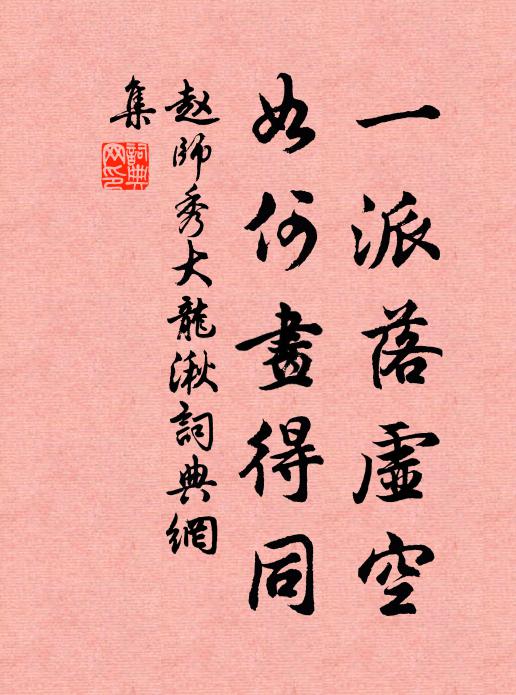 一派落虛空
如何畫得同
赵師秀大龍湫詞典網
集
詞典
网印